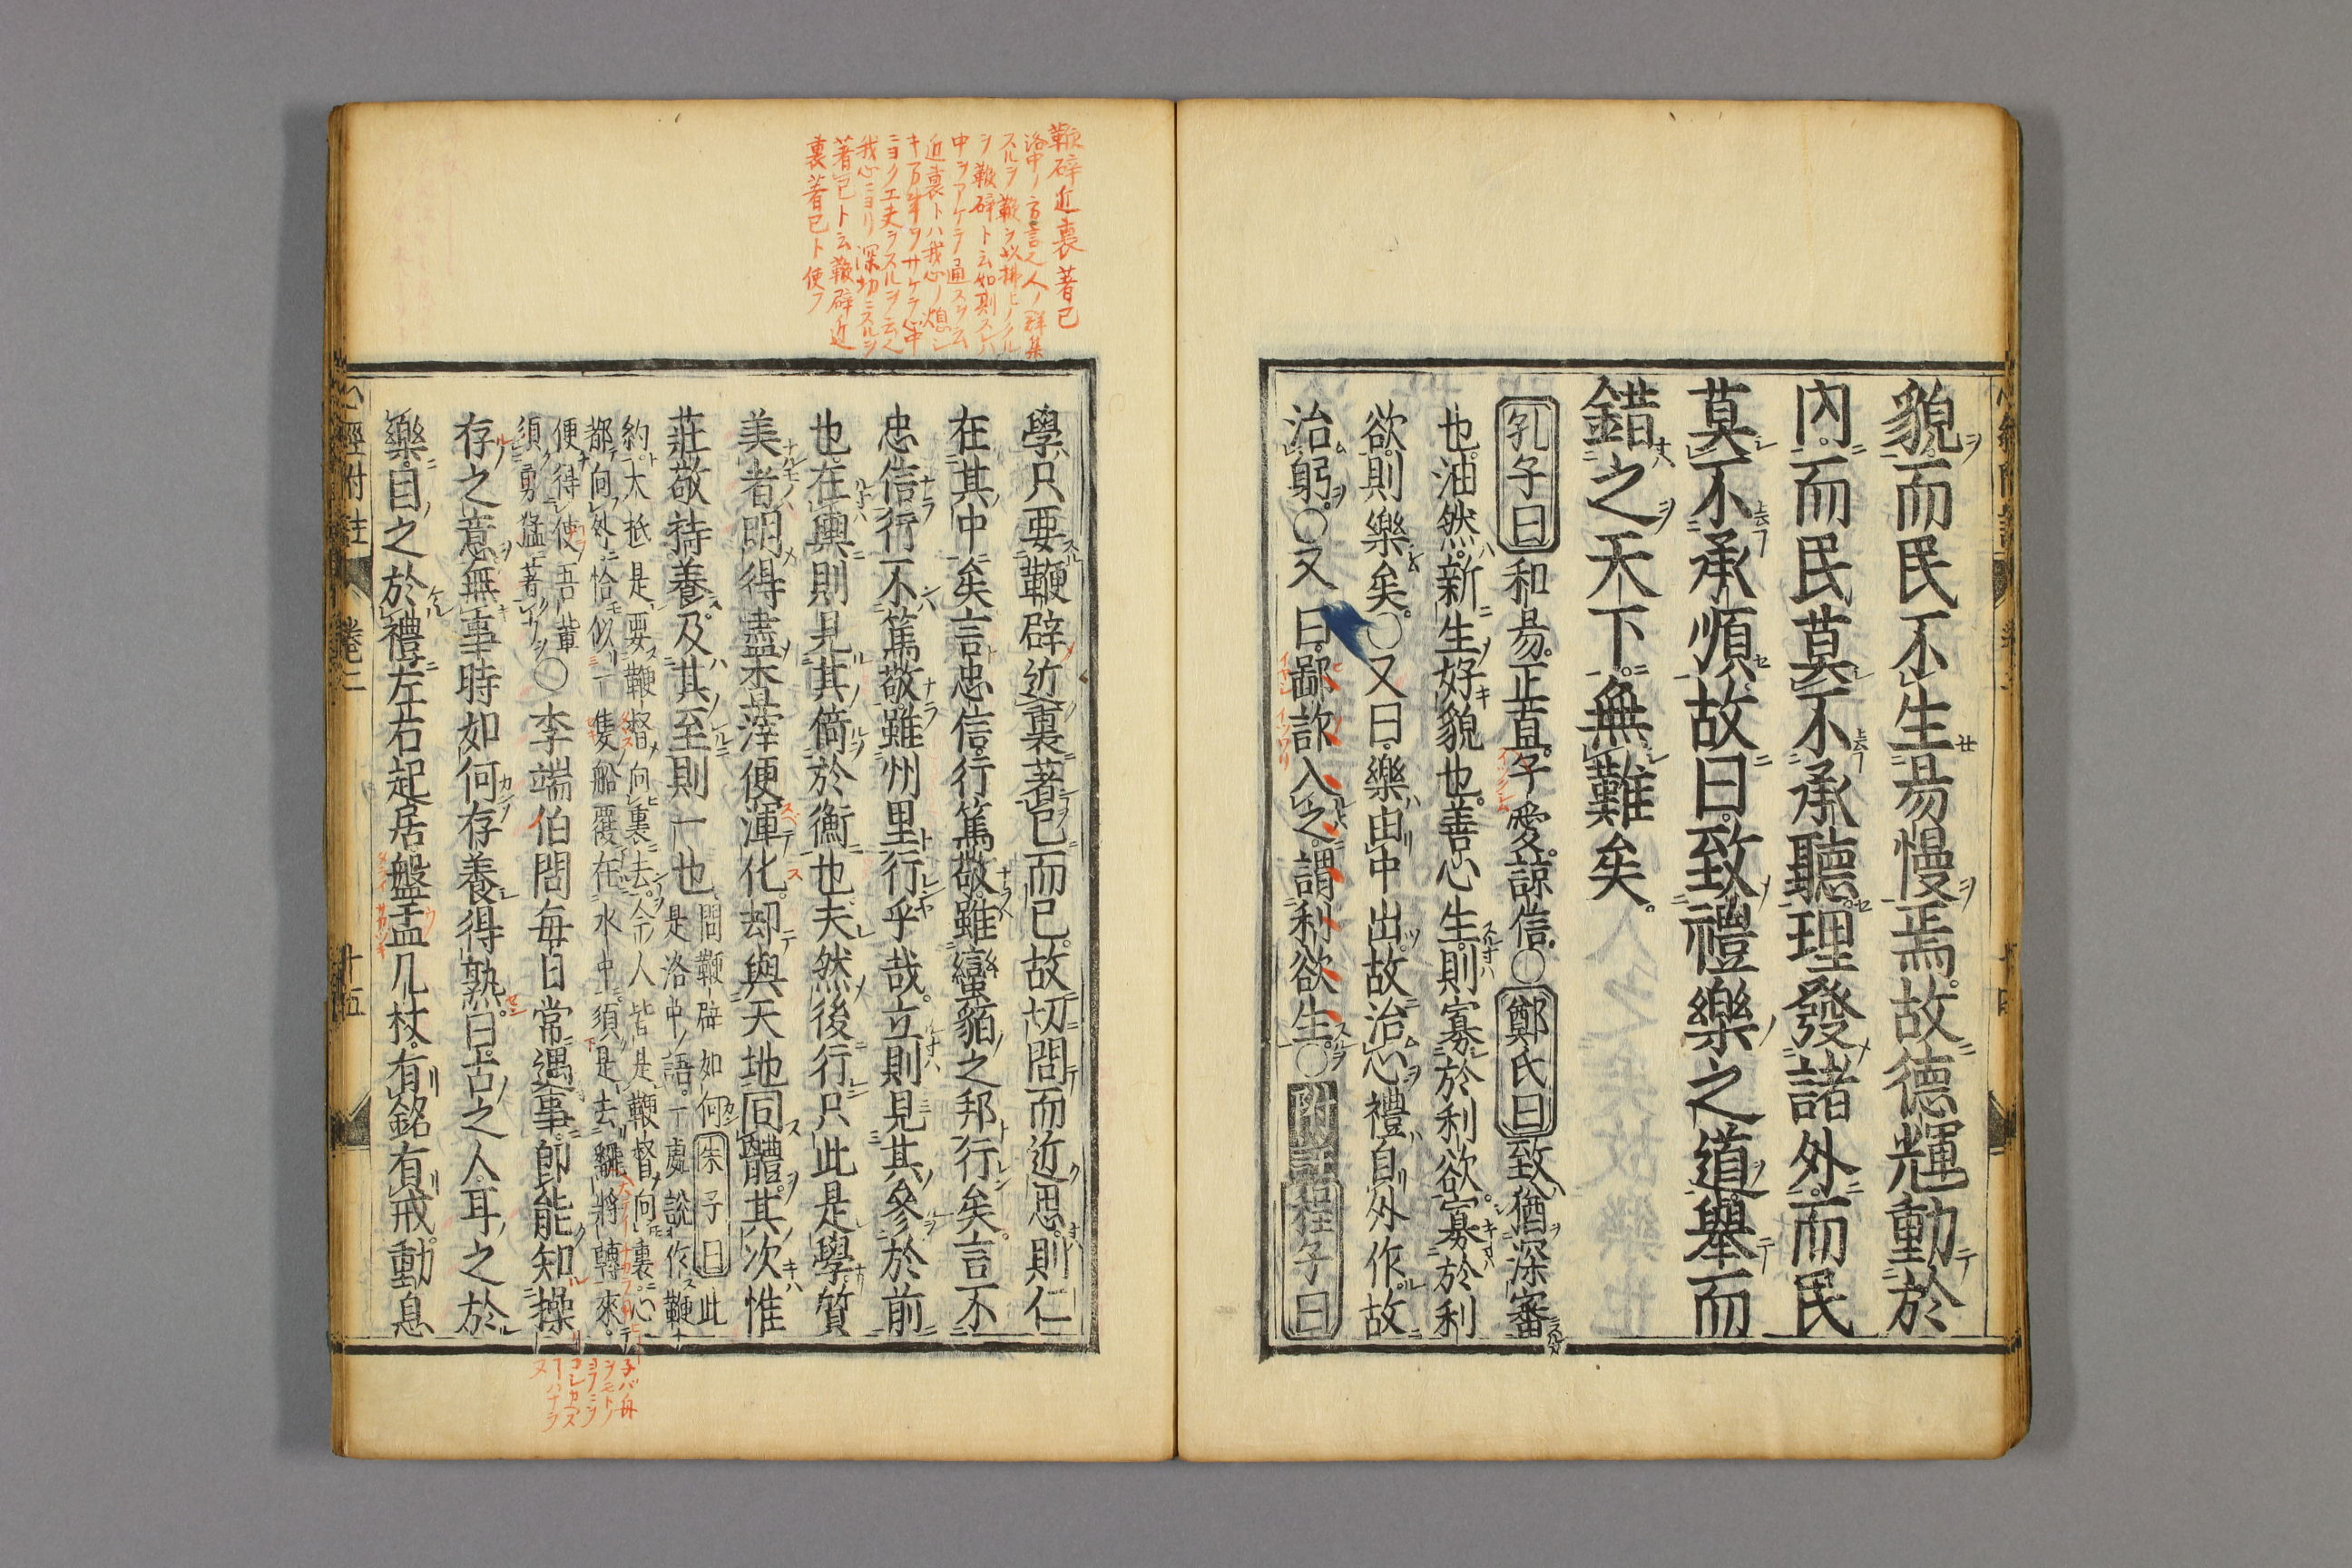 貌而民不生易慢焉故德輝動於
內而民莫不承聽理發諸外而民
莫不承順故曰致禮樂之道舉而
錯之天下無難矣
孔子曰和易正直子愛諒信○鄭氏曰致猶深審
也油然新生好貌也善心生則寡於利欲寡於利
欲則樂矣○又曰樂由中出故治心禮自外作故
治躬○又曰鄙詐入之謂利欲生○附註程子曰
鞭辟近裏著己
洛中ノ方言也人ノ群集
スルヲ鞭ヲ以拂ヒノクル
ヲ鞭辟ト云如此スレハ
中ヲアケテ通スヲ云
近裏トハ我心ノ
キ万事ヲサケテ心中
ニヨク工夫ヲスルヲ云也
我心ニヨリ深切ニスルヲ
著己ト云鞭辟近
裏著己ト使フ
學只要鞭辟近裏著己而已故切問而近思則仁
在其中矣言忠信行篤敬雖蠻貊之邦行矣言不
忠信行不篤敬雖州里行乎哉立則見其參於前
也在輿則見其倚於衡也夫然後行只此是學質
美者明得盡查滓便渾化却與天地同體其次惟
莊敬持養及其至則一也問鞭辟如何朱子曰此
是洛中語一處說作鞭
約大抵是要鞭督向裏去今人皆是鞭督向裏心
都向外恰似一隻船覆在水中須是去翻將轉來
便得使吾輩
須勇猛著○李端伯問每日常遇事即能知操
存之意無事時如何存養得熟曰古之人耳之於
樂目之於禮左右起居盤盂几杖有銘有戒動息
心經附註 卷二 十五